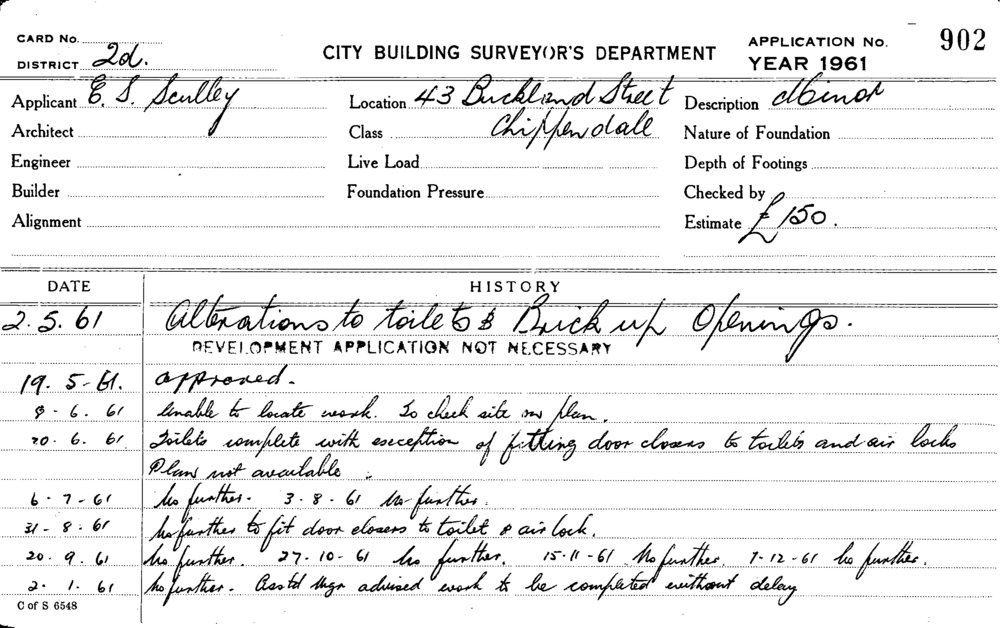 CARD No.
DISTRICT 2d.
CITY BUILDING SURVEYOR'S DEPARTMENT
APPLICATION No. 902
YEAR 1961
Applicant E. S. Sculley
Location 43 Buckland Street
Description Minor
Architect
Class Chippendale
Nature of Foundation
Engineer
Live Load
Depth of Footings
Builder
Foundation Pressure
Checked by
Alignment
Estimate £150.
DATE HISTORY
2.5.61 Alterations to toilets & Brick up Openings.
DEVELOPMENT APPLICATION NOT NECESSARY
19.5-61. approved.
8-6.61 Unable to locate work. To check site on plan.
20.6.61 Toilets complete with exception of fitting door closers to toilets and air locks
Plan not available.
6-7-61 No further. 3-8-61 No further.
31-8.61 No further to fit door closers to toilet & air lock.
20.9.61 No further. 27-10-61 No further. 15-11-61 No further. 7-12-61 No further.
2.1.61 No further. Asstd Mgr advised work to be completed without delay
C of S 6548